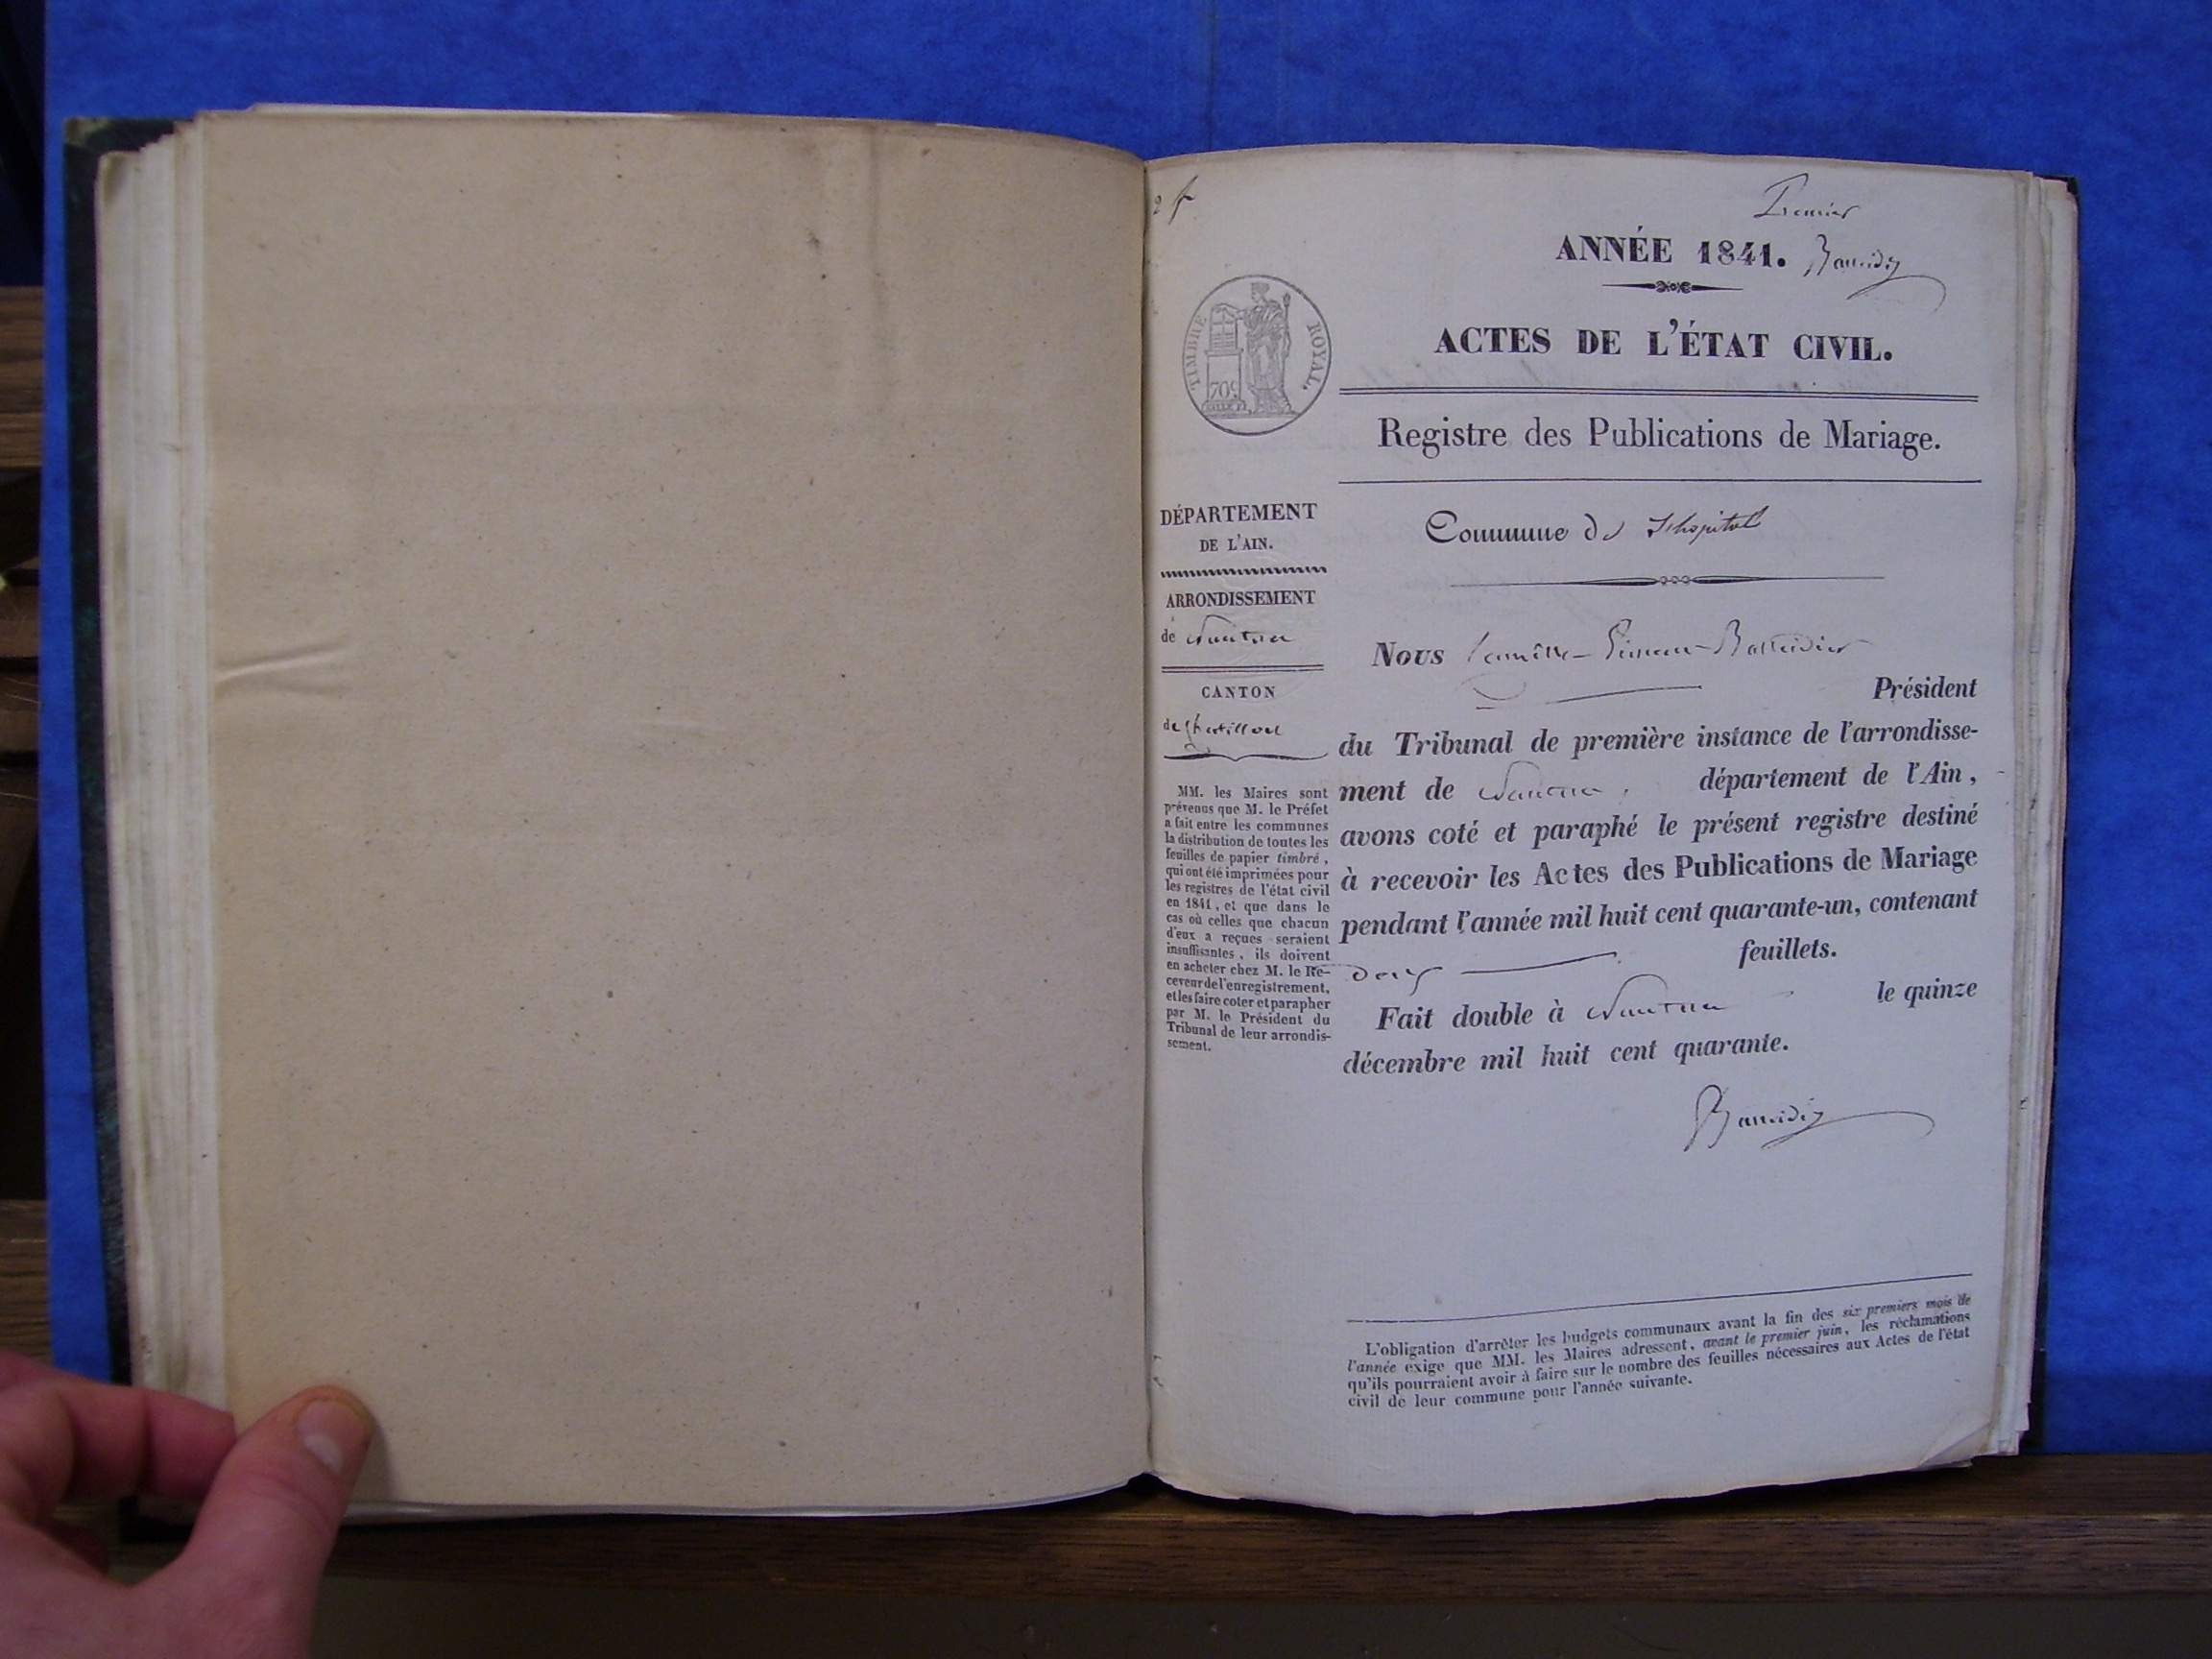 2 f
Premier
ANNÉE 1841.
TIMBRE ROYAL.
70c
ACTES DE L'ÉTAT CIVIL.
Registre des Publications de Mariage.
Commune de L'hopital
DÉPARTEMENT
DE L'AIN.
ARRONDISSEMENT
de Nantua
CANTON
de Chatillon
MM. les Maires sont
prévenus que M. le Préfet
a fait entre les communes
la distribution de toutes les
feuilles de papier timbré,
qui ont été imprimées pour
les registres de l'état civil
en 1841, et que dans le
cas où celles que chacun
d'eux a reçues seraient
insuffisantes, ils doivent
en acheter chez M. le Re-
ceveur de l'enregistrement,
et les faire coter et parapher
par M. le Président du
Tribunal de leur arrondis-
sement.
Nous Camille
Président
du Tribunal de première instance de l'arrondisse-
ment de Nantua, département de l'Ain,
avons coté et paraphé le présent registre destiné
à recevoir les Actes des Publications de Mariage
pendant l'année mil huit cent quarante-un, contenant
deux feuillets.
Fait double à Nantua le quinze
décembre mil huit cent quarante.
L'obligation d'arrêter les budgets communaux avant la fin des six premiers mois de
l'année exige que MM. les Maires adressent, avant le premier juin, les réclamations
qu'ils pourraient avoir à faire sur le nombre des feuilles nécessaires aux Actes de l'état
civil de leur commune pour l'année suivante.